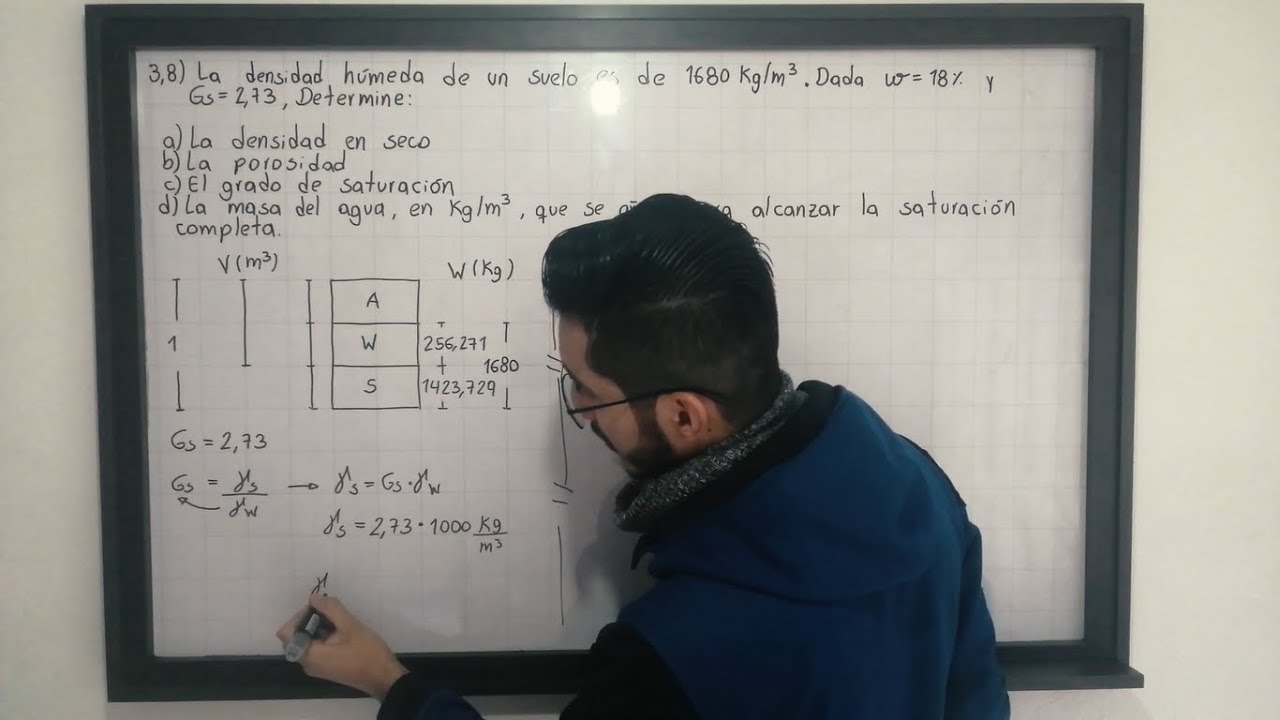 3,8) La densidad húmeda de un suelo es de 1680 Kg/m³. Dada w = 18% y
Gs = 2,73, Determine:
a) La densidad en seco
b) La porosidad
c) El grado de saturación
d) La masa del agua, en Kg/m³, que se alcanzar la saturación
completa.
V (m³)
W (Kg)
A
1
W
256,271
1680
S
1423,729
Gs = 2,73
Gs = γs / γw → γs = Gs · γw
γs = 2,73 · 1000 Kg/m³
γ